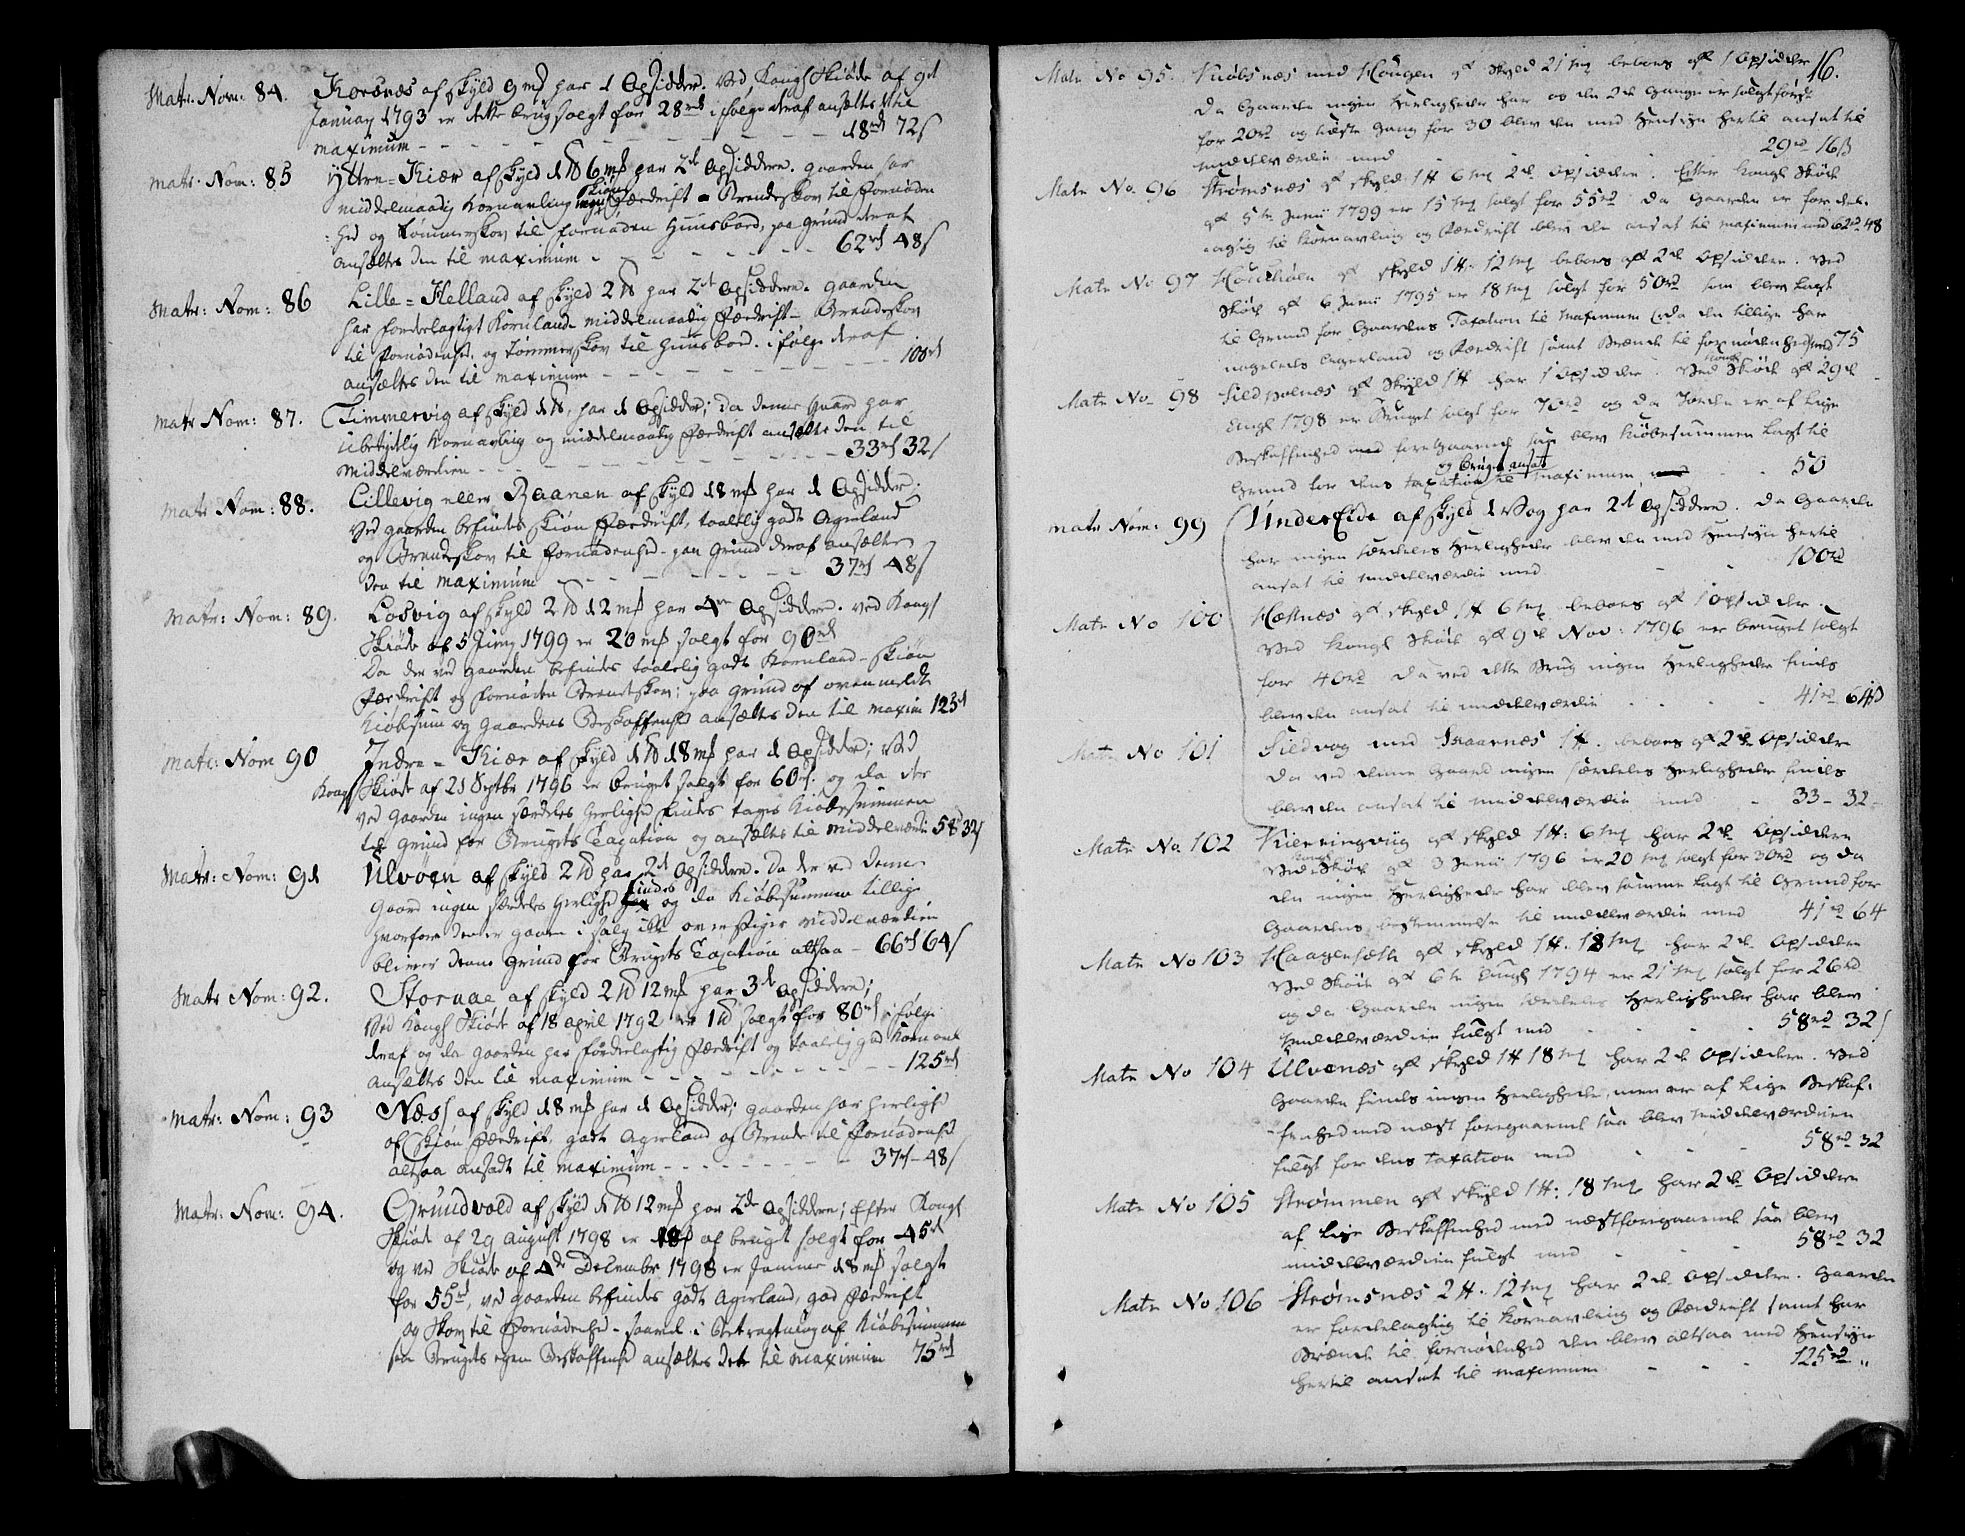 Matr: Nom: 84. Korsnæs af Skyld 9 mk har 1 Opsidder. Ved Kongl Skiøde af 9d
Januarÿ 1793 er dette brug solgt for 28rd i følge deraf ansættes det til
maximum - - - - - 18rd 72s
Matr: Nom: 85 Yttre=Kiær af Skyld 1 # 6 mk har 2de Opsiddere. Gaarden har
skiøn
middelmaadig Kornavling Fædrift - Brændeskov til Fornøden
hed og Tømmerskov til fornøden Huusbord, paa Grund deraf
ansættes den til maximum - - - - 62rd 48s
Matr: Nom: 86 Lille=Helland af Skyld 2 # har 2de Opsiddere. Gaarden
har fordelagtigt Kornland middelmaadig Fædrift - Brændeskov
til Fornødenhed, og Tømmerskov til Huusbord. i følge deraf
ansættes den til maximum - - - - - 100rd
Matr Nom: 87. Timmervig af Skyld 1 #, har 1 Opsidder; da denne Gaard har
ubetydelig Kornavling og middelmaadig Fædrift ansættes den til
Middelværdien - - - - - 33rd 32s
Matr Nom: 88. Lillevig eller Raanen af Skyld 18 mk har 1 Opsidder.
Ved Gaarden befindes skiøn Fædrift, taalelig godt Agerland
og Brændeskov til Fornødenhed - paa Grund deraf ansættes
den til maximum - - - - 37rd 48s
Matr: Nom: 89. Losvig af Skyld 2 # 12 mk har 4re Opsiddere. Ved Kongl
Skiøde af 5 Juny 1799 er 20 mk solgt for 90rd
Da der ved Gaarden befindes taalelig godt Kornland - skiøn
Fædrift og fornøden Brændeskov; paa Grund af ovenmeldte
Kiøbsum og Gaardens Beskaffenhed ansættes den til maxim 125rd
Matr: Nom 90 Indre - Kiær af Skyld 1 # 18 mk har 1 Opsidder; Ved
Kongl Skiøde af 21 Septbr 1796 er bruget solgt for 60rd. og da der
ved Gaarden ingen særdeles Herlighed findes tages Kiøbesummen
til Grund for Brugets Taxation og ansættes til Middelværdi 58rd 32s
Matr: Nom: 91 Ulvøen af Skyld 2 # har 2de Opsiddere. Da der ved denne
Gaard ingen særdeles Herlighed findes og da Kiøbesummen tillige
hvorfore denne Gaard i salg ikke overstiger Middelværdien
bliver denne Grund for Brugets Taxation altsaa - 66rd 64s
Matr Nom: 92. Stornæ af Skyld 2 # 12 mk har 3de Opsiddere;
Ved Kongl Skiøde af 18 april 1792 er 1 # solgt for 80rd, i følge
deraf og da Gaarden har fordelagtig Fædrift og taalelig god Korn avl
ansættes den til maximum - - - - - 125rd
Matr: Nom: 93 Næss af Skyld 18 mk har 1 Opsidder; Gaarden har Herlighed
af Skiøn Fædrift, godt Agerland og Brænde til Fornødenhed
altsaa ansadt til maximum - - - - - 37rd - 48s
Matr: Nom: 94. Grundvold af Skyld 1 # 12 mk har 2de Opsiddere; Efter Kongl
Skiøde af 29 August 1798 er af bruget solgt for 45rd
og ved Skiøde af 4de Decembr 1798 er samme 18 mk solgt
for 55rd, ved Gaarden befindes godt Agerland, god Fædrift
og Skov til Fornødenhed - saavel i Betragtning af Kiøbesummen
som Brugets egen Beskaffenhed ansættes det til maximum 75rd
16.
Matr No 95. Kiøbsnæs med Haugen af Skyld 21 mk beboes af 1 Opsidder
da Gaarden ingen Herligheder har og den 2de Gange er solgt først
for 20rd og sidste Gang for 30 blev den med Hensyn hertil ansat til
middelværdie med - - - 29rd 16s
Matr No. 96 Strømsnæs af Skyld 1 # 6 mk 2de Opsiddere. Efter Kongl Skiøde
af 5te Junii 1799 er 15 mk solgt for 55rd da Gaarden er fordel-
agtig til Kornavling og Fædrift blev den ansat til maximum med 62rd 48
Matr No 97 af Skyld 1 #. 12 mk beboes af 2de Opsiddere. Ved
Skiøde af 6 Junii 1795 er 18 mk solgt for 50rd som blev lagt
til Grund for Gaardens Taxation til maximum (da den tillige har
nogenledes Agerland og Fædrift samt Brænde til fornødenhed) med 75
Matr No 98 Sildpolnæs af Skyld 1 # har 1 Opsidder. Ved Kongl Skiøde af 29de
Augl 1798 er Bruget solgt for 70rd og da Jorden er af lige
Beskaffenhed med foregaaende saa blev Kiøbesummen lagt til
og bruget ansat
Grund for dens taxation til maximum - - 50
Matr Nom: 99 Under Eide af Skyld 1 Vog har 2de Opsiddere. Da Gaarden
har ingen særdeles Herligheder blev den med Hensyn hertil
ansat til middelværdie med - - 100rd
Matr No 100 Hæstnæs af Skyld 1 # 6 mk beboes af 1 Opsidder.
Ved Kongl Skiøde af 9de Nov: 1796 er bruget solgt
for 40rd da ved dette Brug ingen Herligheder findes
blev den ansat til middelværdie - - 41rd 64s
Matr No 101 Sildvog med 1 #. beboes af 2de Opsiddere
da ved denne Gaard ingen særdeles Herligheder findes
blev den ansat til middelværdie med - 33 - 32 -
Matr No. 102 Kierringviig af Skyld 1 #: 6 mk har 2de Opsiddere
Ved Kongl Skiøde af 3 Junii 1796 er 20 mk solgt for 30rd og da
den ingen Herligheder har blev samme lagt til Grund for
Gaardens bestemmelse til middelværdie med 41rd 64
Matr No 103 Haagensæth af Skyld 1 #. 18 mk har 2de Opsiddere
Ved Skiøde af 6te Augl 1794 er 21 mk solgt for 26rd
og da Gaarden ingen særdeles Herligheder har blev
middelværdien fulgt med - - - 58rd 32s
Matr No 104 Ulvenæs af Skyld 1 # 18 mk har 2de Opsiddere. Ved
Gaarden findes ingen Herligheder, men er af lige Beskaf-
fenhed med næst foregaaende saa blev middelværdien
fulgt for dens taxation med - - 58rd 32
Matr No 105 Strømmen af Skyld 1 #: 18 mk har 2de Opsiddere
af lige Beskaffenhed med næstforegaaende saa blev
middelværdien fulgt med - - 58rd 32
Matr No 106 Strømsnæs 2 #. 12 mk har 2de Opsiddere. Gaarden
er fordelagtig til Kornavling og Fædrift samt har
Brænde til fornødenhed den blev altsaa med Hensyn
hertil ansat til maximum - - - 125rd "